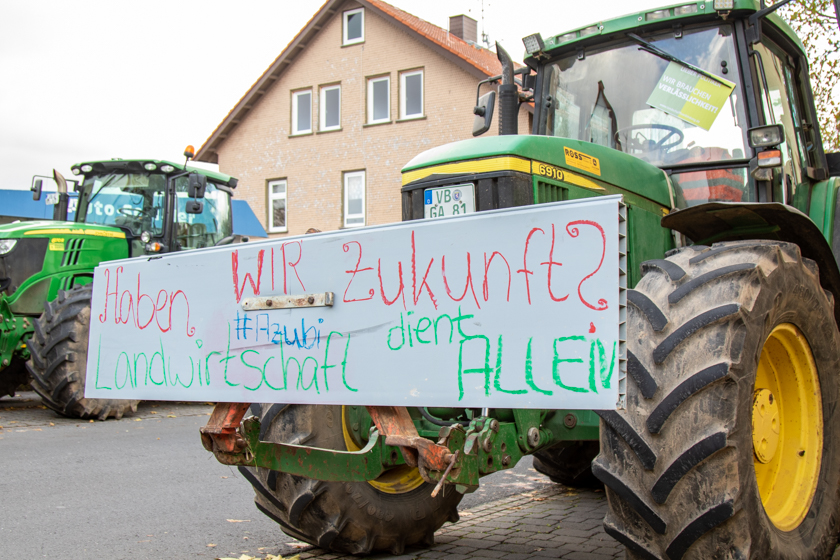 WIR BRAUCHEN
VERLÄSSLICHKEIT
ROSS
6910
VB
GA 81
Haben WIR Zukunft?
#Azubi
Landwirtschaft dient ALLEN!